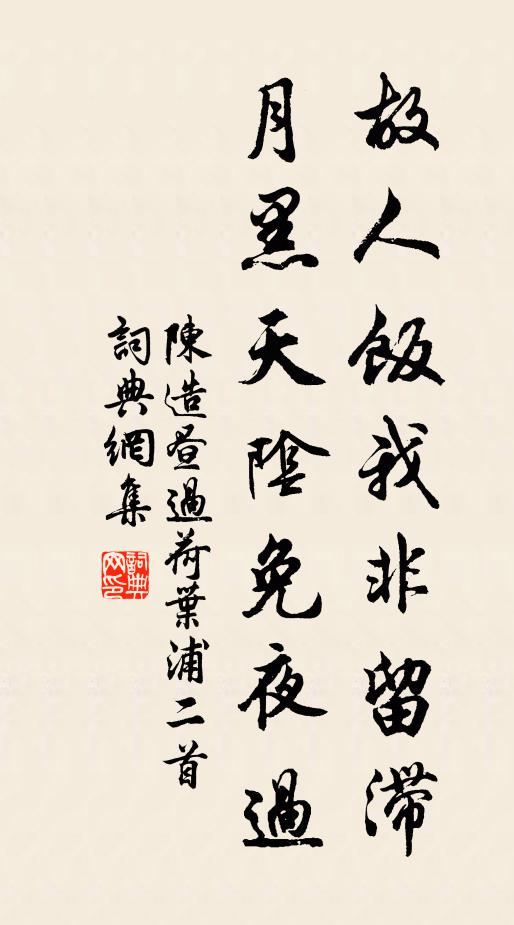 故人飯我非留滯
月黑天陰免夜過
陳造晝過荷葉浦二首
詞典網集
詞典
网印